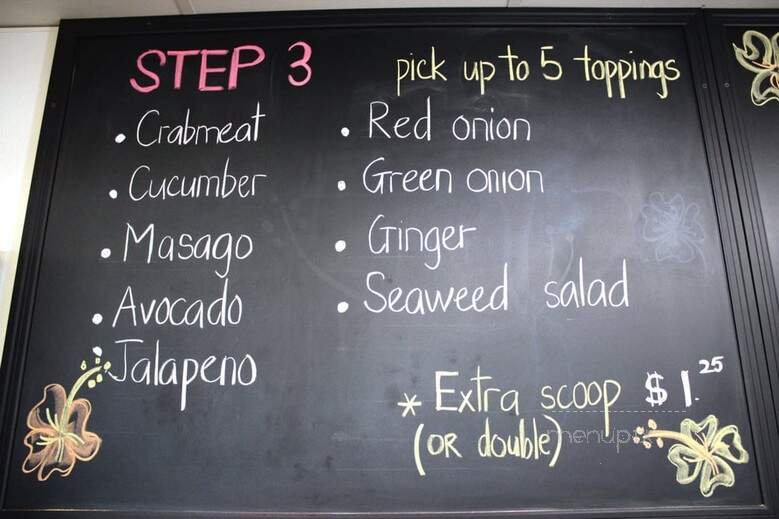 STEP 3
pick up to 5 toppings
• Crabmeat
• Cucumber
• Masago
• Avocado
• Jalapeno
• Red onion
• Green onion
• Ginger
• Seaweed salad
* Extra scoop $1.25
(OR double)
menup